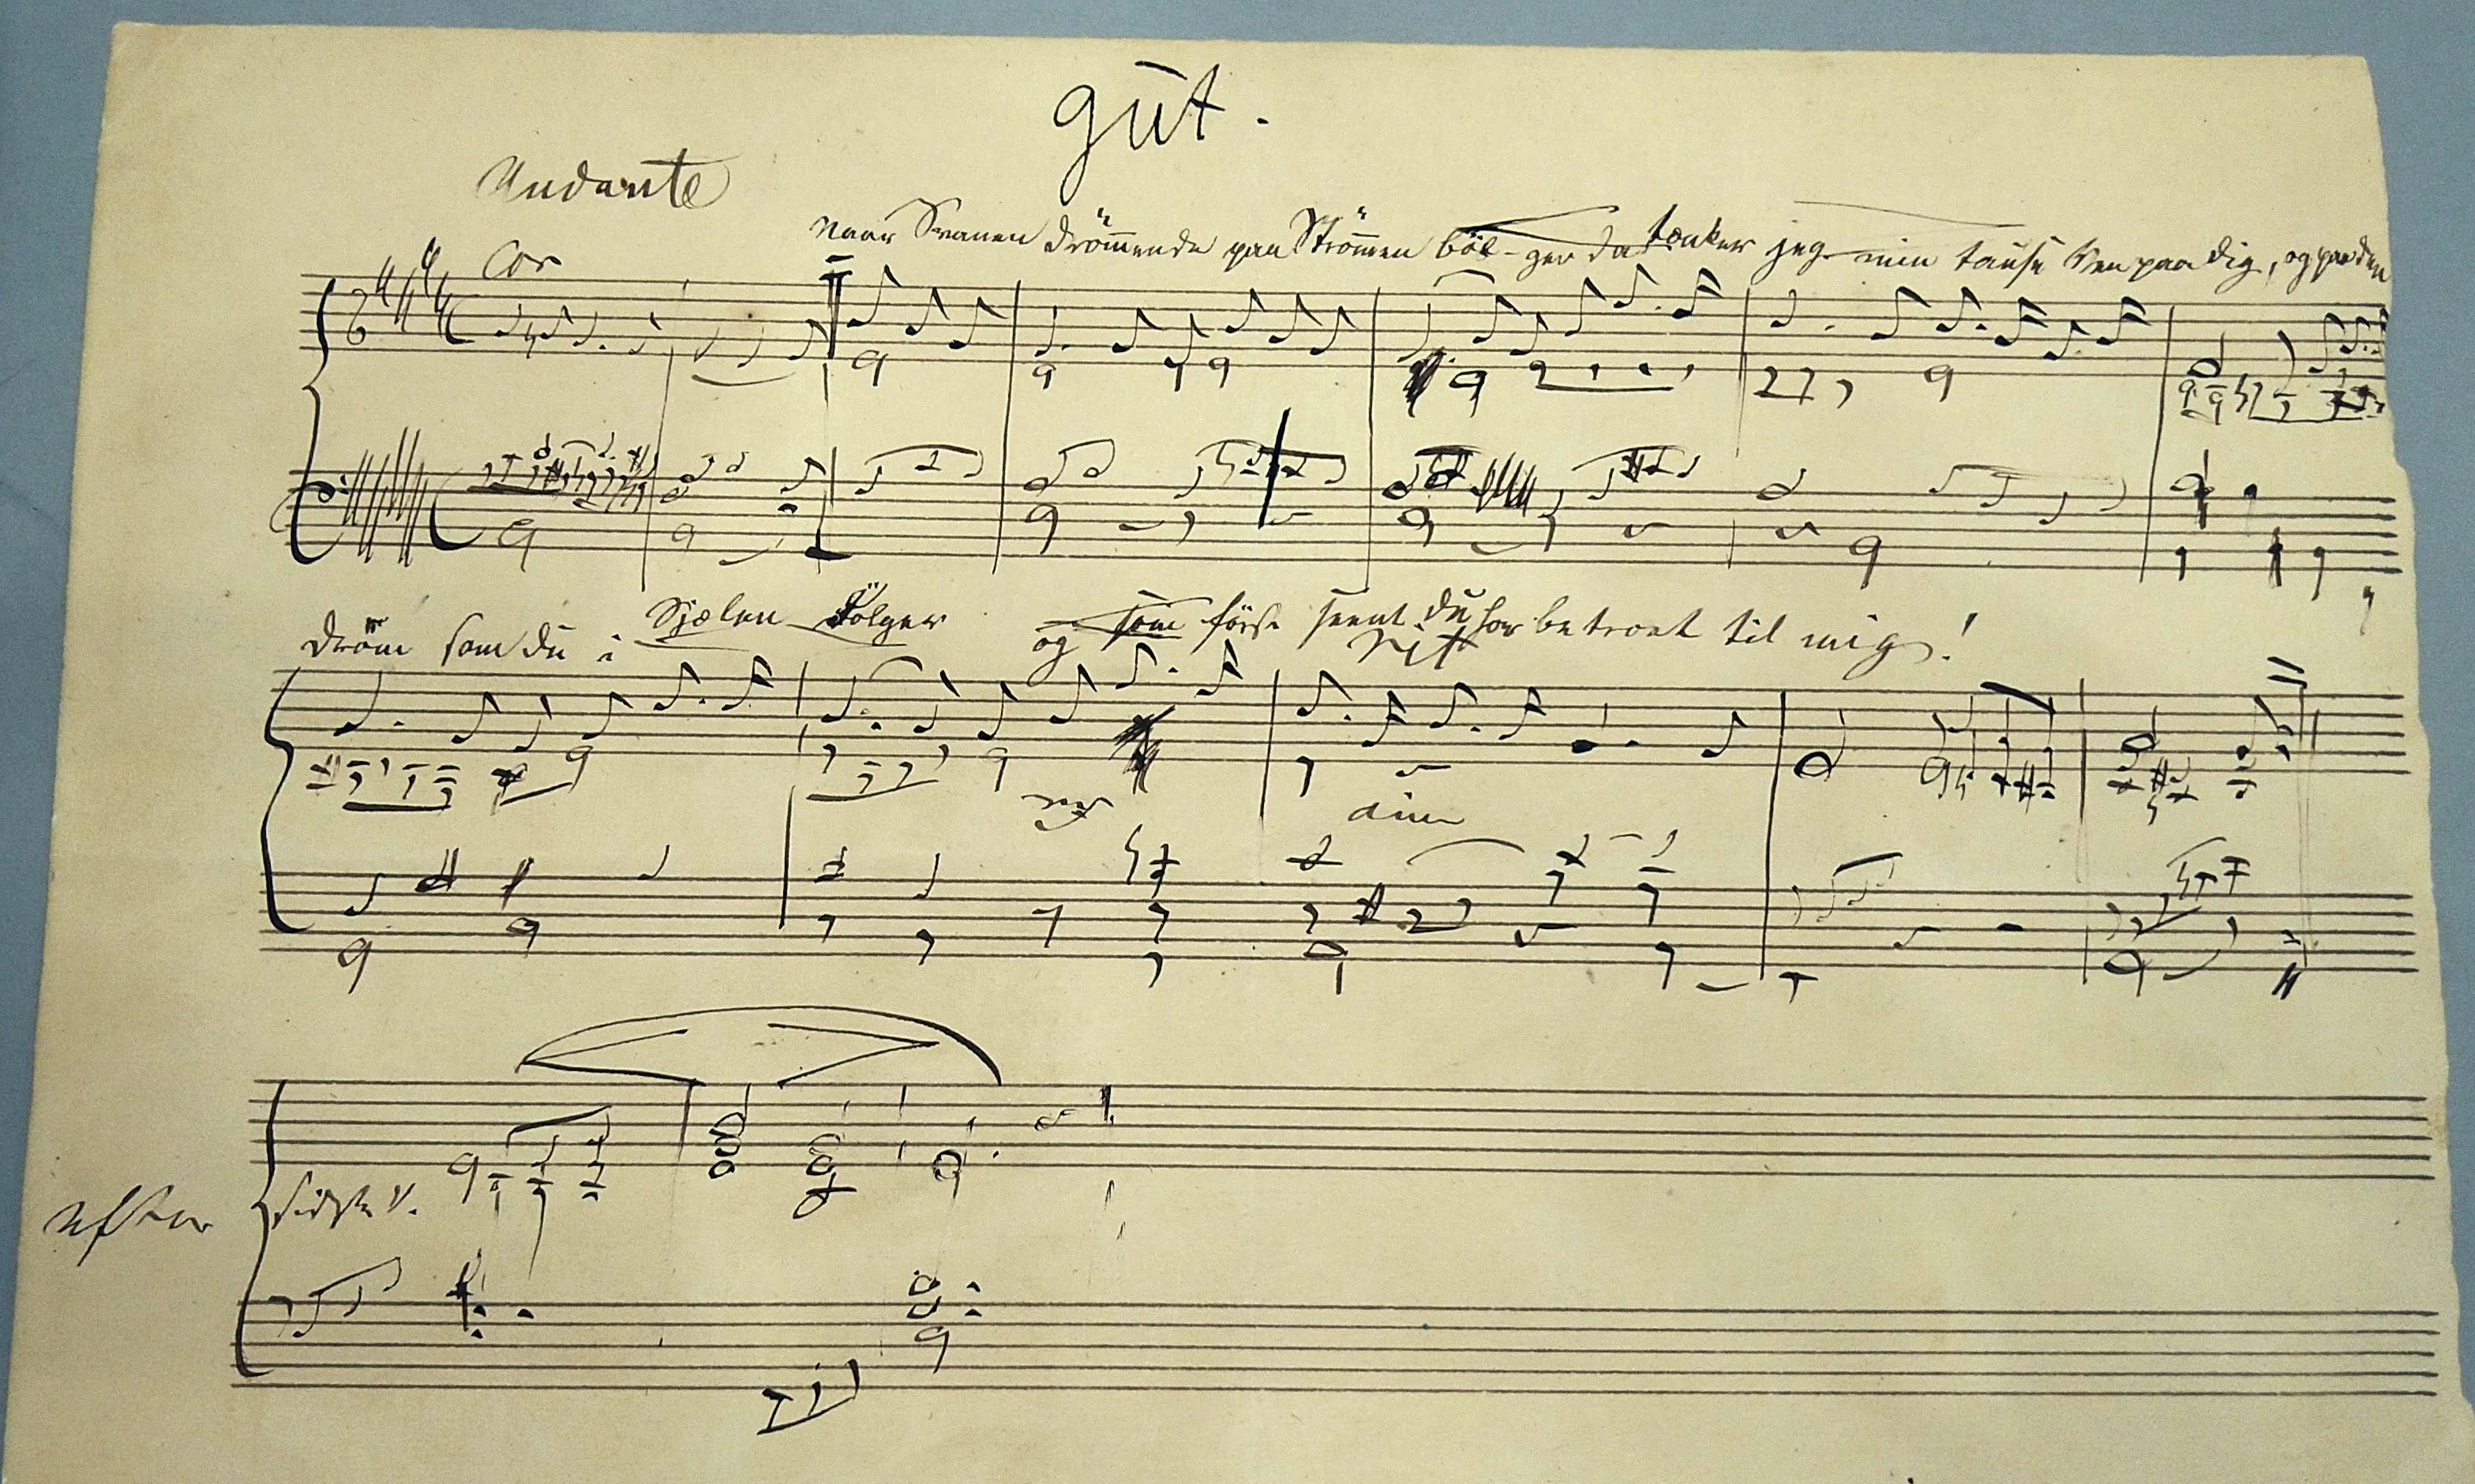 gut.
Andante
Cor
naar Svanen drömmende paa Strömmen böl-ger da tænker jeg min tause Ven paa dig, og paa den
dröm som du i Sjælen dölger og som först sent du har betroet til mig!
rit
dim
efter sidste V.